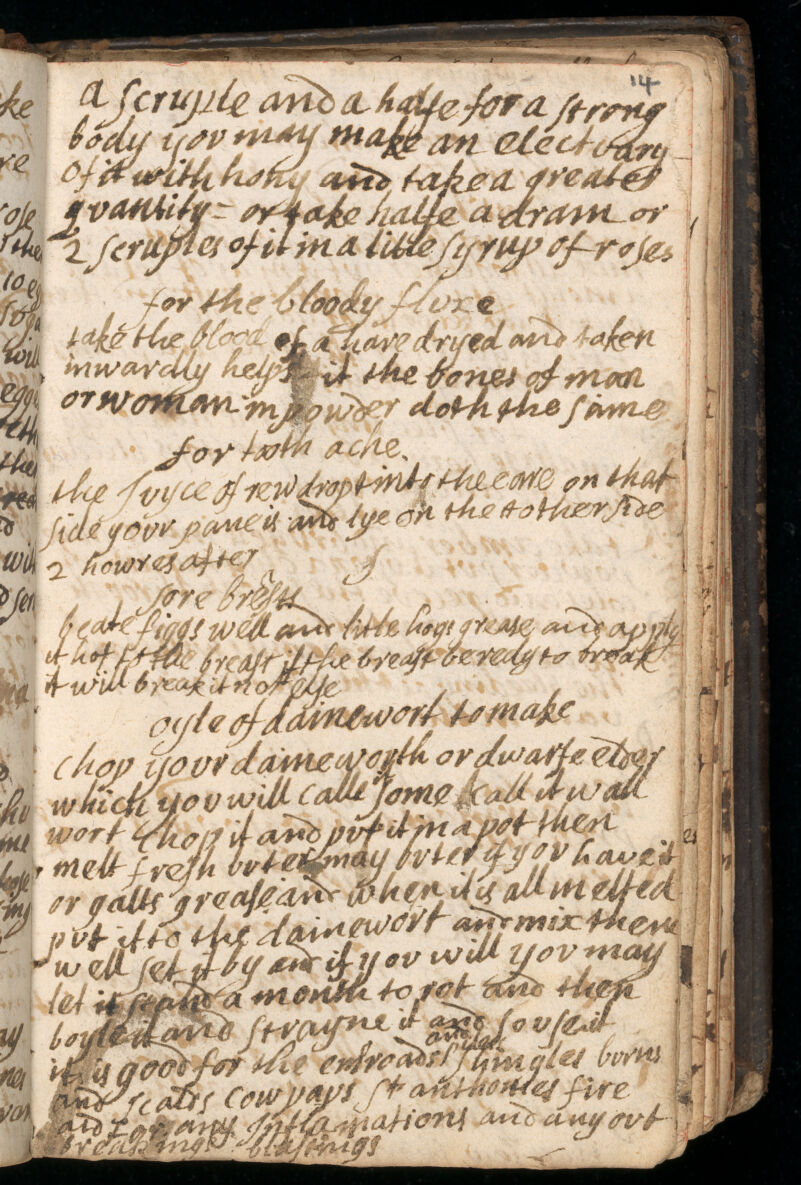 14
a scruple and a halfe for a strong
body you may make an electuary
of it with hony and take a greater
quantity = or take halfe a dram or
2 scruples of it in a litle syrup of roses
for the bloody fluxe
take the blood of a hare dryed and taken
inwardly helps it the bones of man
or woman in powder doth the same
for tooth ache
the Juyce of rew dropt into the eare on that
side your pane is and lye on the tother side
2 howres after
sore brests
beate figgs well and litle hogs grease and apply
it hot to the breast if the breast be redy to break
it will break it not else
oyle of dainewort to make
chop your daineworth or dwarfe elder
which you will calle some call it wall
wort chop it and put it in a pot then
melt fresh buter may buter if you have it
or galls grease and when it is all melted
put it to the dainewort and mix them
well set it by and if you will you may
let it stand a month to rot and then
boyle it and strayne it and so use it
it is good for the shingles burns
and scalds cow paps St anthonies fire
and for any Inflamations and any out
breakings blasings